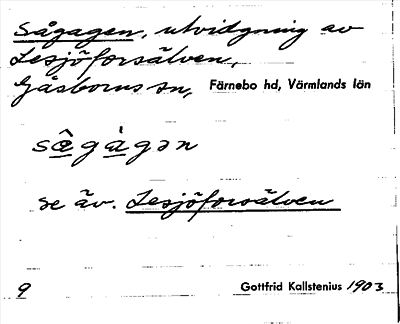 Sågagen, utvidgning av
Lesjöforsälven,
Gåsborns sn, Färnebo hd, Värmlands län
se äv. Lesjöforsälven
9 Gottfrid Kallstenius 1903